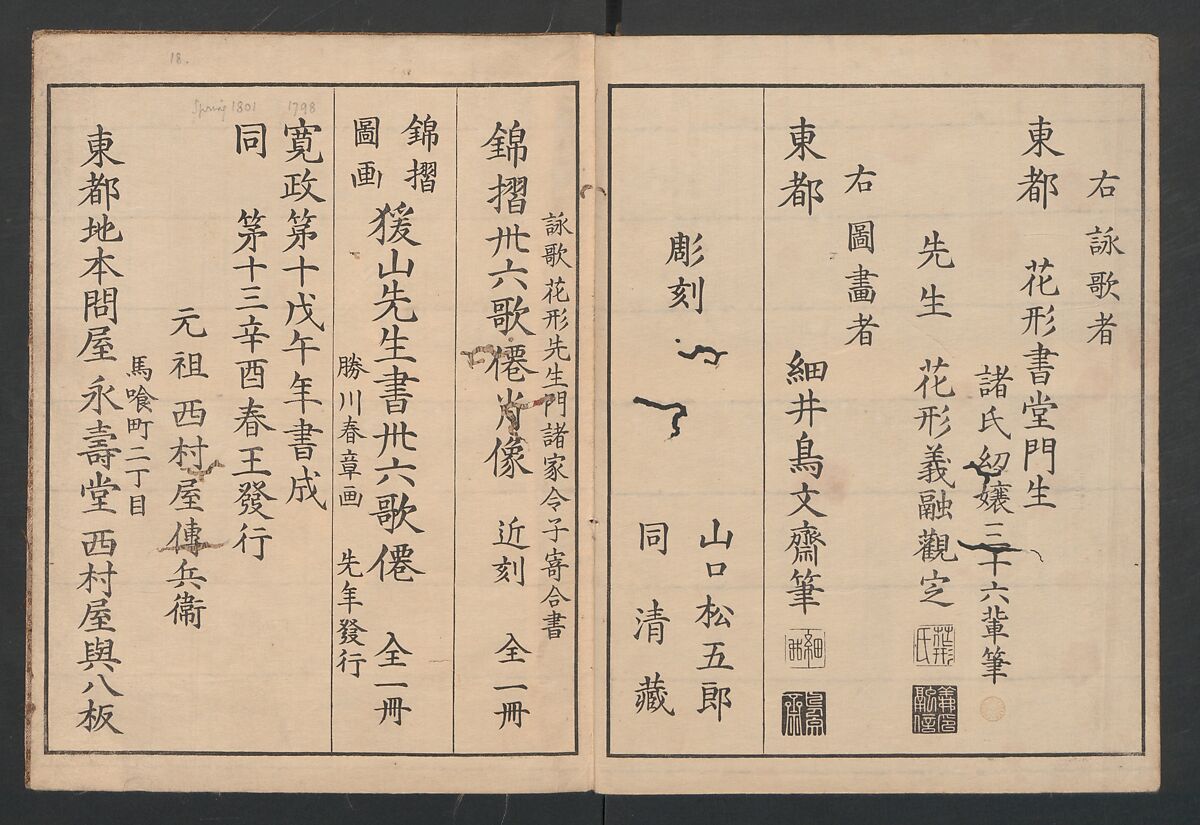 右詠歌者
東都 花形書堂門生
諸氏幼嬢三十六輩筆
先生 花形義融觀定
右圖畫者
東都 細井鳥文齋筆
彫刻 山口松五郎
同 清藏
詠歌花形先生門諸家令子寄合書
錦摺卅六歌僊肖像 近刻 全一冊
錦摺
圖画
猨山先生書卅六歌僊 全一冊
勝川春章画 先年發行
1798
寛政第十戊午年書成
Spring 1801
同 第十三辛酉春王發行
元祖 西村屋傳兵衞
馬喰町二丁目
東都地本問屋 永壽堂 西村屋與八板
18.